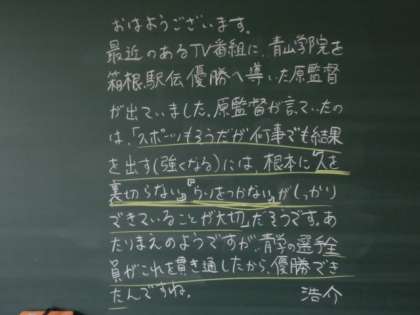 おはようございます。
最近のあるTV番組に、青山学院を
箱根駅伝優勝へ導いた原監督
が出ていました。原監督が言っていたの
は、「スポーツもそうだが何事でも結果
を出す(強くなる)には、根本に『人を
裏切らない』『ウソをつかない』がしっかり
できていることが大切」だそうです。あ
たりまえのようですが、青学の選手全
員がこれを貫き通したから、優勝でき
たんですね。 浩介